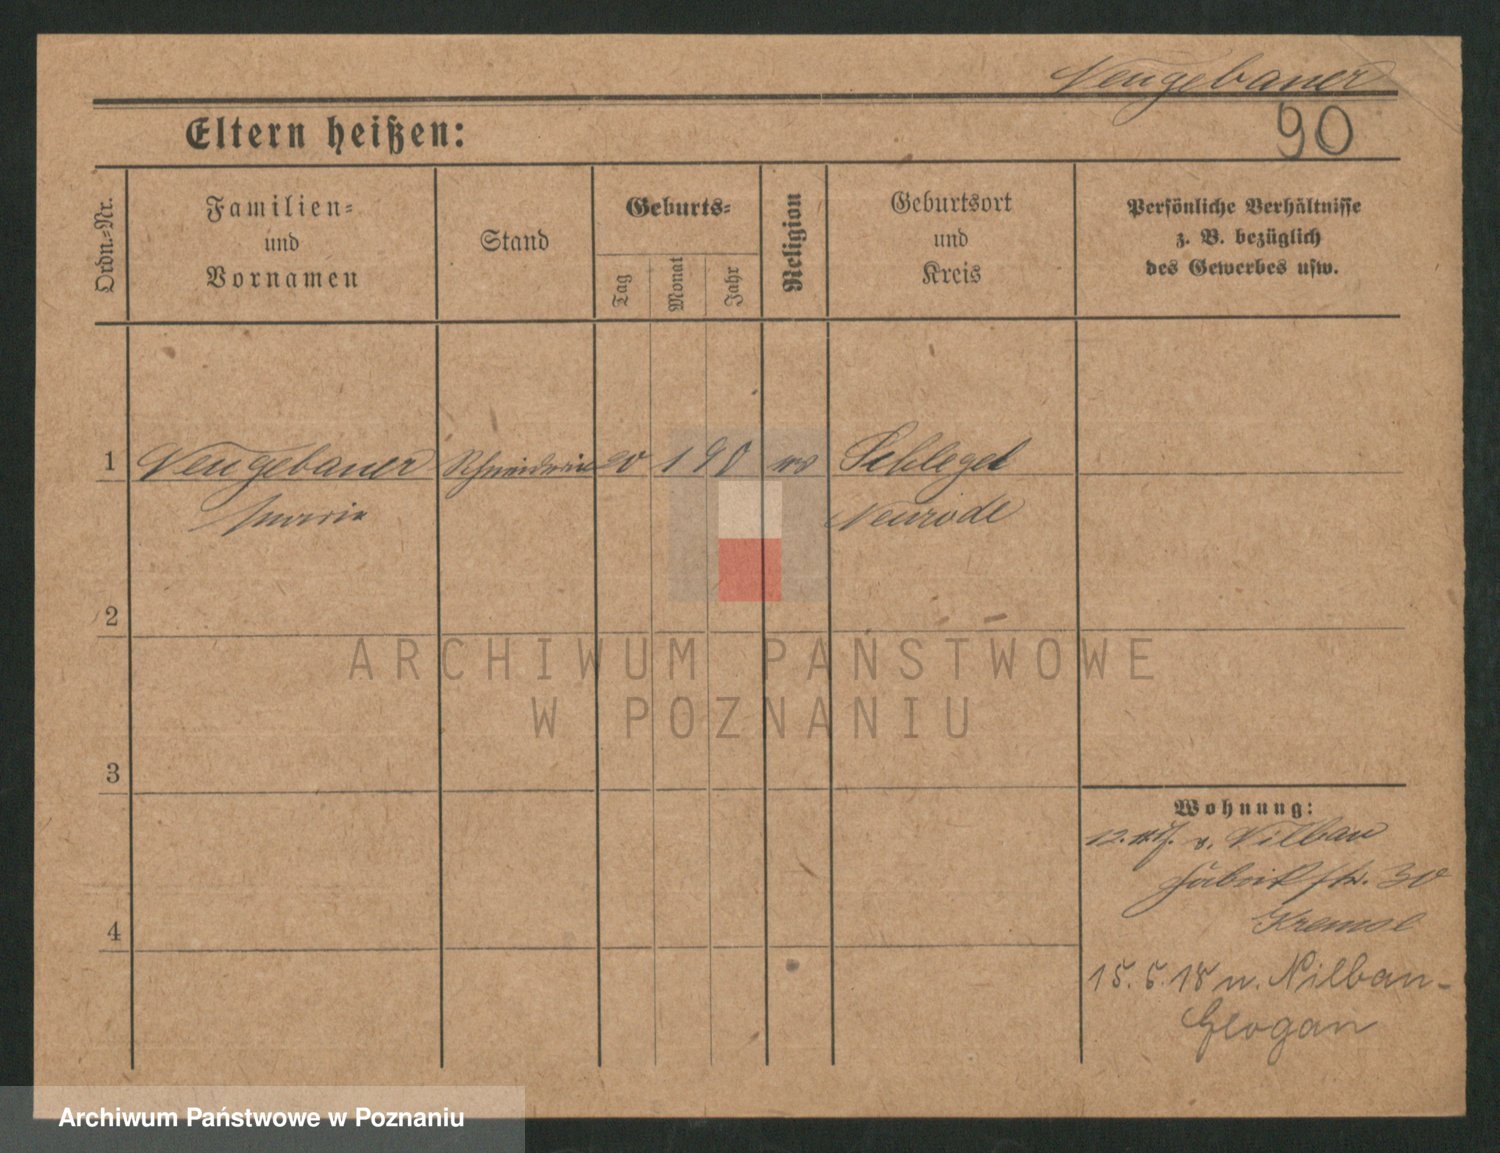 Neugebauer
90
Eltern heißen:
Ordn.-Nr.
Familien-
und
Vornamen
Stand
Geburts-
Tag
Monat
Jahr
Religion
Geburtsort
und
Kreis
Persönliche Verhältnisse
z. B. bezüglich
des Gewerbes usw.
1 Neugebauer Schneiderin 20 1 90 Schlegel
Maria Neurode
2
3
4
Wohnung:
12. v. Nilbau
Fabrikstr. 30
15. 5. 18 n. Nilbau-
Glogau
ARCHIWUM PAŃSTWOWE
W POZNANIU
Archiwum Państwowe w Poznaniu